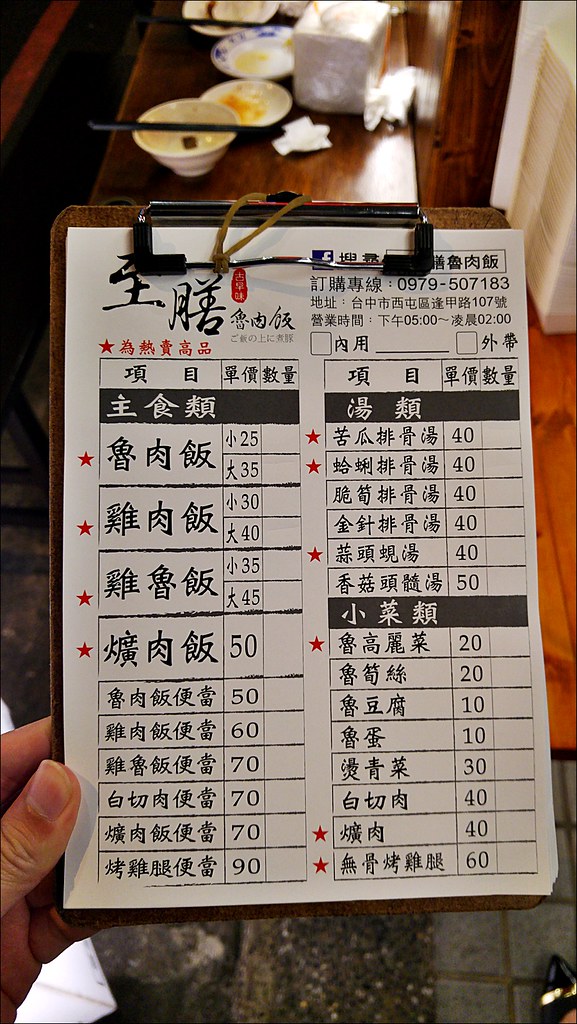 至膳
古早味
魯肉飯
ご飯の上に煮豚
搜尋 膳魯肉飯
訂購專線：0979-507183
地址：台中市西屯區逢甲路107號
營業時間：下午05:00～凌晨02:00
內用 外帶
★為熱賣高品
項目 單價 數量
主食類
★ 魯肉飯 小25
大35
★ 雞肉飯 小30
大40
★ 雞魯飯 小35
大45
★ 爌肉飯 50
魯肉飯便當 50
雞肉飯便當 60
雞魯飯便當 70
白切肉便當 70
爌肉飯便當 70
烤雞腿便當 90
項目 單價 數量
湯類
★ 苦瓜排骨湯 40
★ 蛤蜊排骨湯 40
脆筍排骨湯 40
金針排骨湯 40
★ 蒜頭蜆湯 40
香菇頭髓湯 50
小菜類
★ 魯高麗菜 20
魯筍絲 20
魯豆腐 10
魯蛋 10
燙青菜 30
白切肉 40
★ 爌肉 40
★ 無骨烤雞腿 60